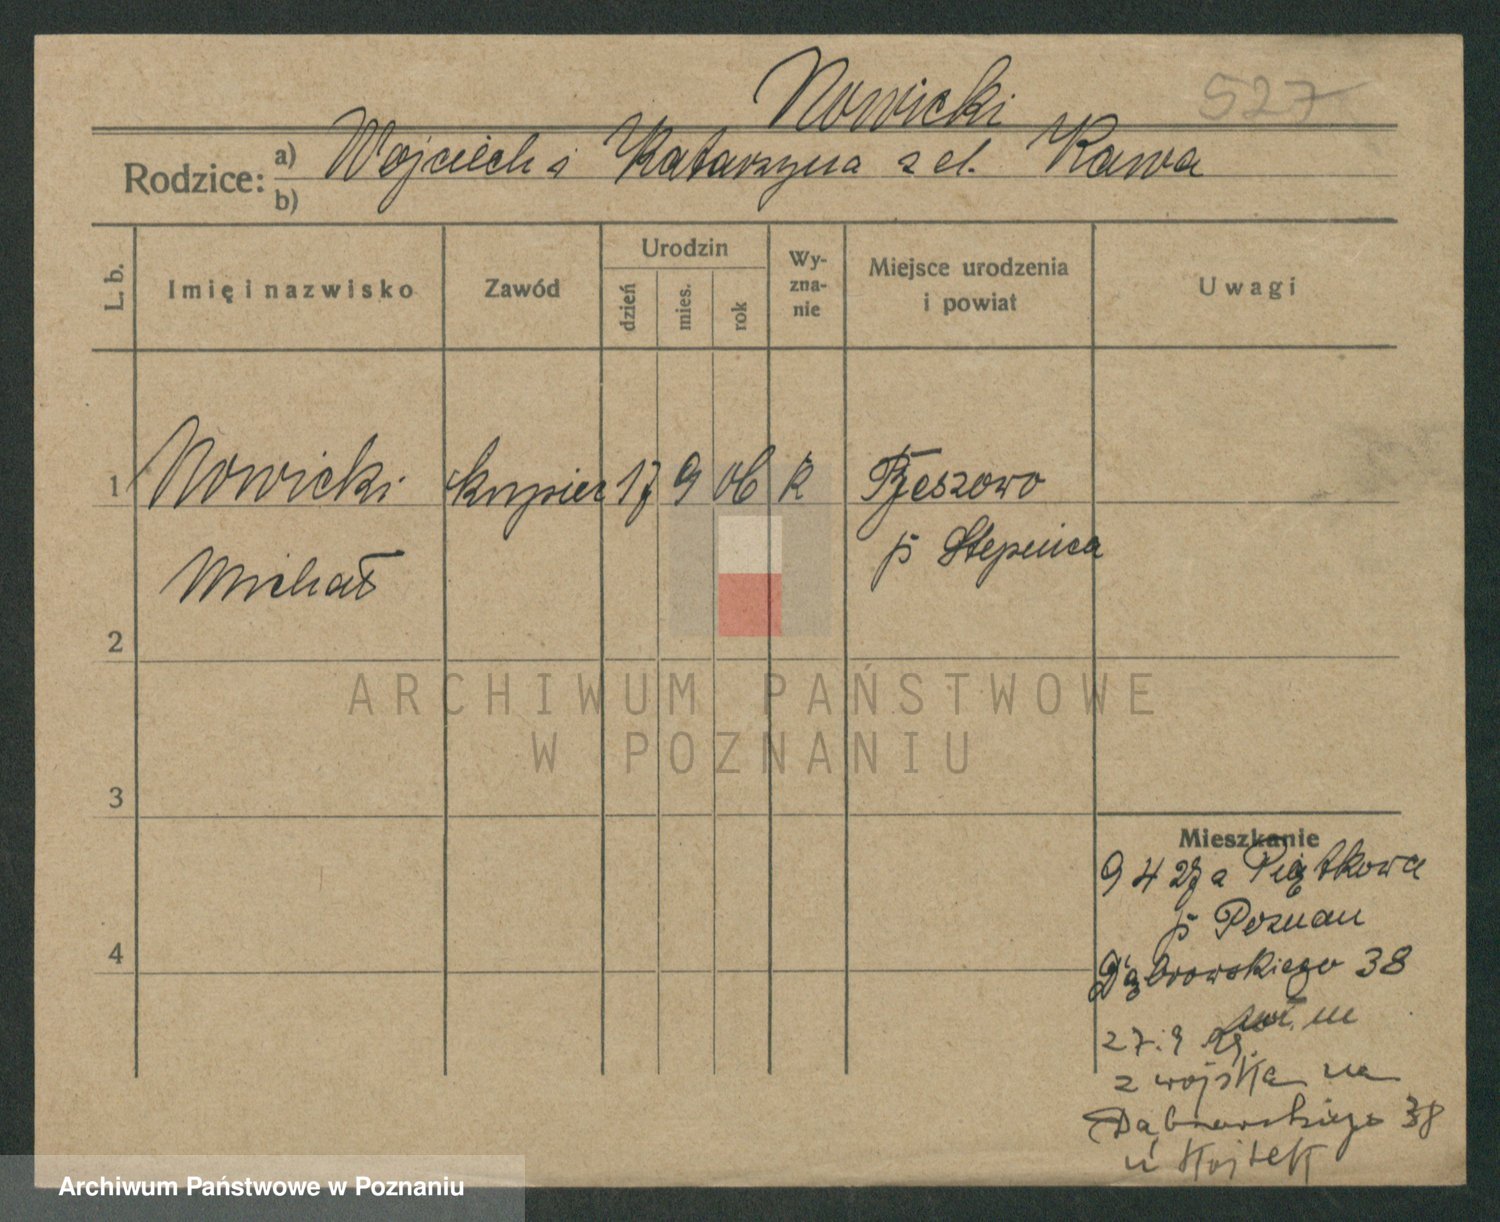 Nowicki 527
Rodzice: a) Wojciech i Katarzyna z d. Kawa
b)
L. b. Imię i nazwisko Zawód Urodzin dzień mies. rok Wy-zna-nie Miejsce urodzenia i powiat Uwagi
1 Nowicki kupiec 17 9 06 k
p Stepnica
Michał
2
ARCHIWUM PAŃSTWOWE
W POZNANIU
3
Mieszkanie
9 4 27 a Piątkowa
p Poznan
4 Dąbrowskiego 38
27.9 29.
z wojska na
Dąbrowskiego 38
Archiwum Państwowe w Poznaniu